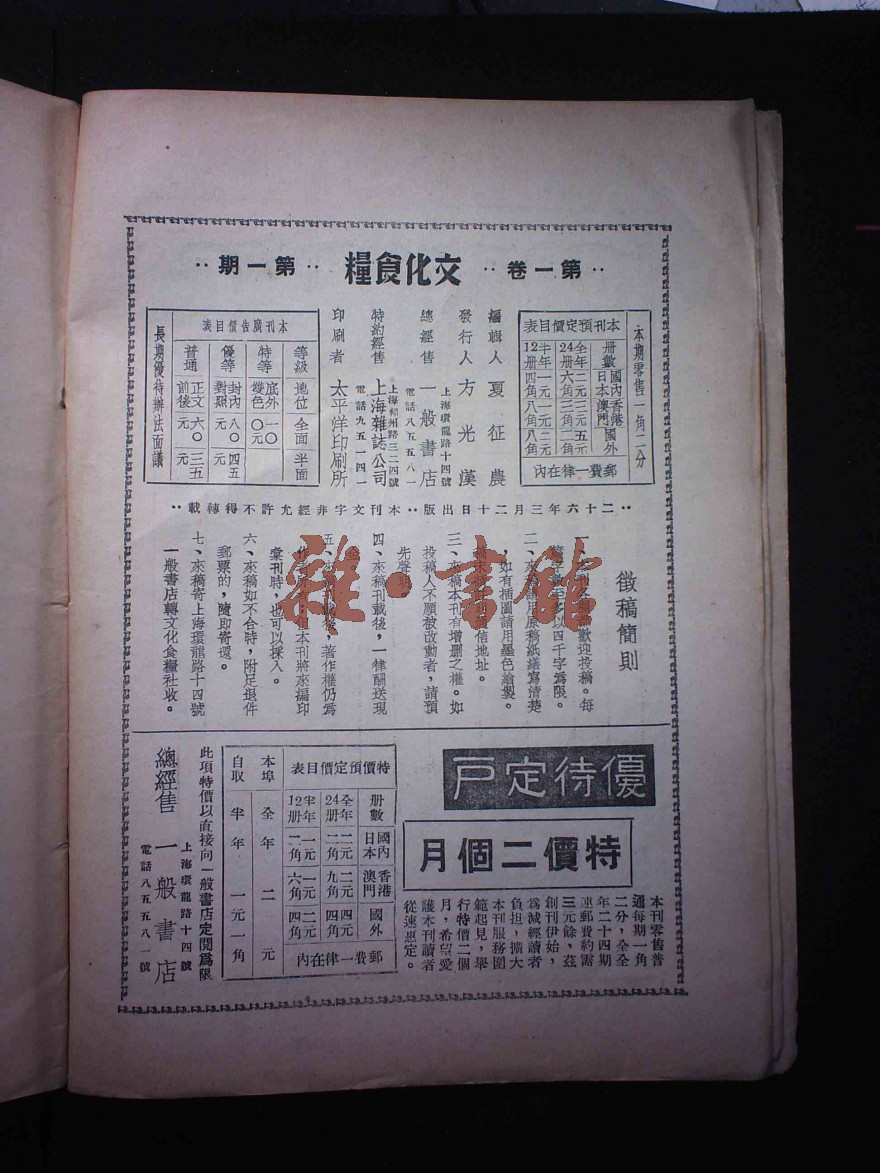 第一卷 文化食糧 第一期
本期零售一角二分
本刊預定價目表
冊數 國內日本 香港澳門 國外
全年24冊 二元六角 三元三角 五元二角
半年12冊 一元四角 一元八角 二元八角
郵費一律在內
編輯人 夏征農
發行人 方光漢
總經售 一般書店
上海環龍路十四號
電話八五五八一
特約經售 上海雜誌公司
上海福州路三二四號
電話九五一四一
印刷者 太平洋印刷所
本刊廣告價目表
等級 地位 全面 半面
特等 底外雙色 一〇〇元
優等 封內對照 八〇元 四五元
普通 正文前後 六〇元 三五元
長期優待辦法面議
二十六年三月二十日出版 本刊文字非經允許不得轉載
徵稿簡則
歡迎投稿。每
以四千字為限。
二、來稿 用原稿紙繕寫清楚
，如有插圖請用墨色繪製。
信地址。
三、來稿本刊有增刪之權。如
投稿人不願被改動者，請預
先聲明
四、來稿刊載後，一律酬送現
五、來稿 載後，著作權仍為
本刊將來編印
彙刊時，也可以採入。
六、來稿如不合時，附足退件
郵票的，隨即寄還。
七、來稿寄上海環龍路十四號
一般書店轉文化食糧社收。
優待定戶
特價二個月
本刊零售普
通每期一角
二分，全全
年二十四期
連郵費約需
三元餘，茲
創刊伊始，
為減經讀者
負担，擴大
本刊服務圍
範起見，舉
行特價二個
月，希望愛
護本刊讀者
從速惠定。
特價預定價目表
冊數 國內日本 香港澳門 國外
全年24冊 二元二角 二元九角 四元四角
半年12冊 一元二角 一元六角 二元四角
郵費一律在內
本埠 全年 二元
自取 半年 一元一角
此項特價以直接向一般書店定閱為限
總經售 一般書店
上海環龍路十四號
電話八五五八一號
雜·書館